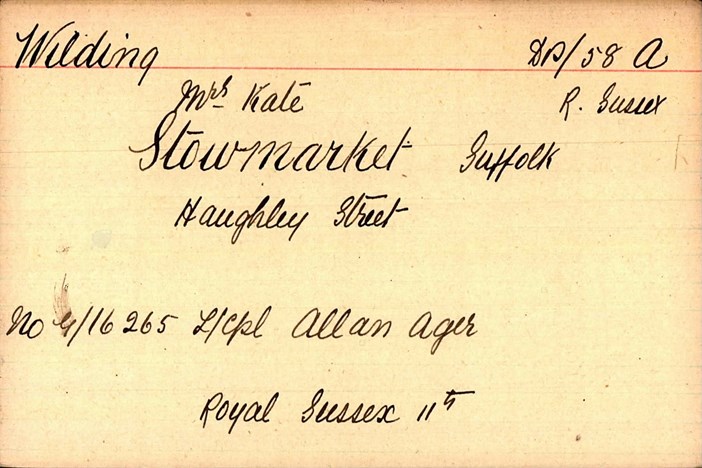 Wilding DB/58 A
Mrs Kate R. Sussex
Stowmarket Suffolk
Haughley Street
No G/16265 L/Cpl Allan Ager
Royal Sussex 11th